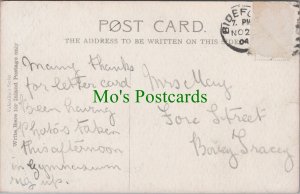 POST CARD.
THE ADDRESS TO BE WRITTEN ON THIS SIDE
BIDEFORD
7. PM
NO 2
04
Many thanks
for letter card
been having
photos taken
this afternoon
in Gymnasium
rig up.
Mrs May
Fore Street
Bovey Tracey
Mo's Postcards